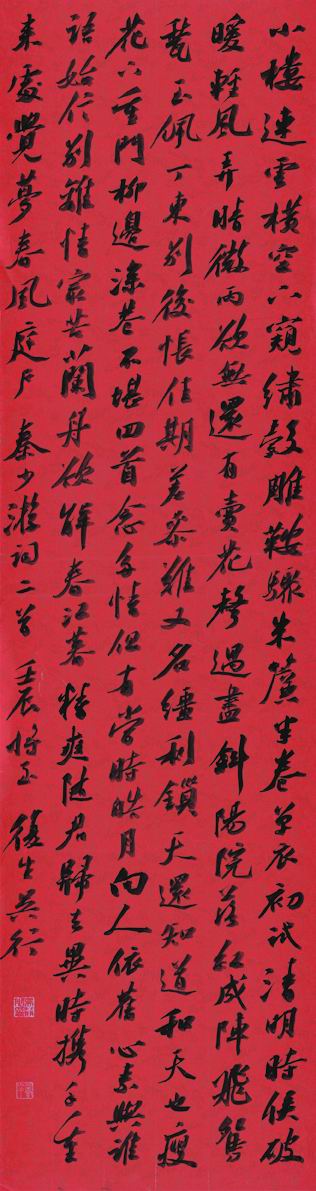 小樓連雲橫空下窺繡轂雕鞍驟朱簾半卷單衣初試清明時候破
暖輕風弄晴微雨欲無還有賣花聲過盡斜陽院落紅成陣飛鴛
甃玉佩丁東別後悵佳期差參難又名繮利鎖天還知道和天也瘦
花下重門柳邊深巷不堪回首念多情但有當時皓月向人依舊心素與誰
語始信別離情最苦蘭舟欲解春江暮精爽隨君歸去異時攜手重
來處覺夢春風庭戶 秦少游詞二首 壬辰將至 後生吳行